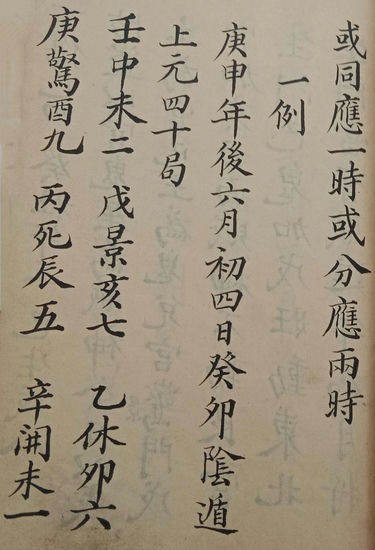 或同應一時或分應兩時
一例
庚申年後六月初四日癸卯陰遁
上元四十局
壬中未二 戊景亥七 乙休卯六
庚驚酉九 丙死辰五 辛開未一